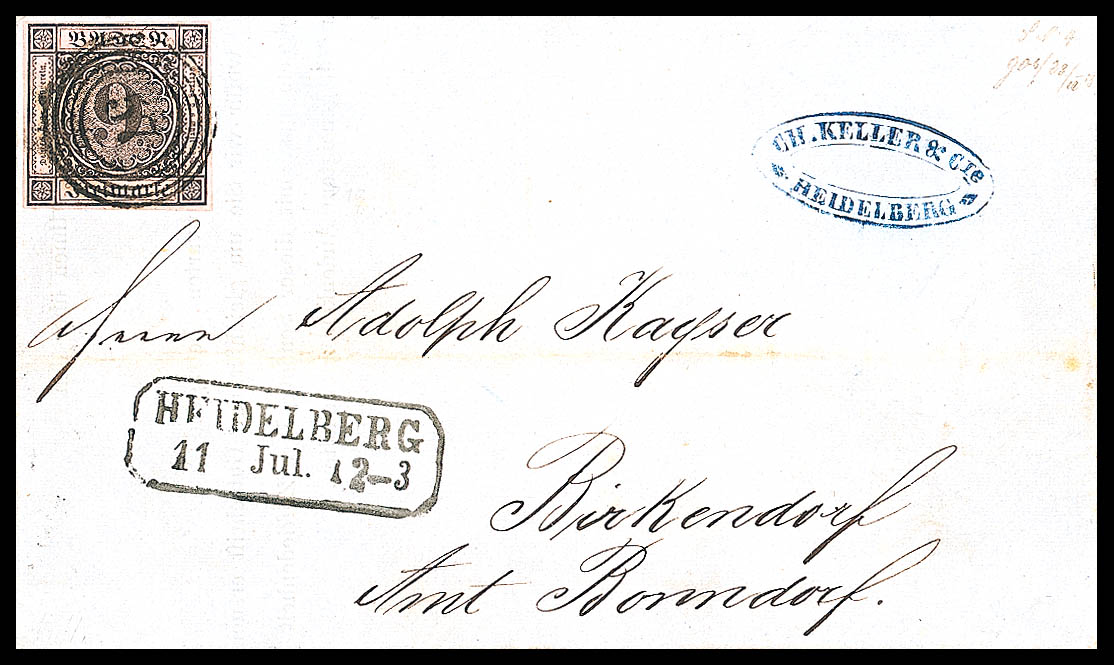 BADEN
9
Freimarke
CH. KELLER & CIE
HEIDELBERG
Herrn Adolph Kayser
HEIDELBERG
11 Jul. 12-3
Birkendorf
Amt Bonndorf.